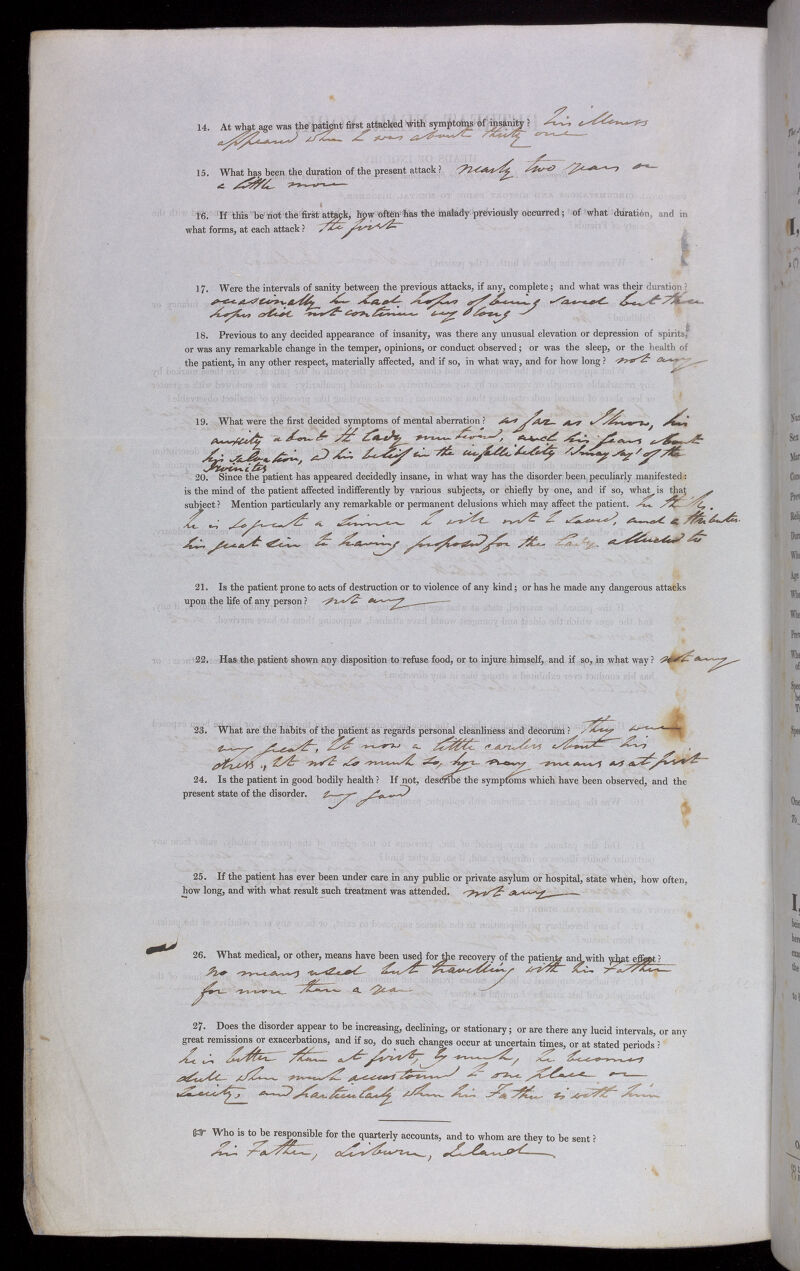 14. At what age was the patient first attacked with symptoms of insanity? his illness
appeared when he was about thirty one
15. What has been the duration of the present attack? nearly two years or
a little more
16. If this be not the first attack, how often has the malady previously occurred; of what duration, and in
what forms, at each attack? the first
17. Were the intervals of sanity between the previous attacks, if any, complete; and what was their duration?
occasionally he had hopes of being saved but these
hopes did not continue very long
18. Previous to any decided appearance of insanity, was there any unusual elevation or depression of spirits,
or was any remarkable change in the temper, opinions, or conduct observed; or was the sleep, or the health of
the patient, in any other respect, materially affected, and if so, in what way, and for how long? not any
19. What were the first decided symptoms of mental aberration? as far as I know, his
anxiety about the lady mentioned, and his fears about
his salvation, and his belief in the infallibility I may say of the
Irvinites
20. Since the patient has appeared decidedly insane, in what way has the disorder been peculiarly manifested:
is the mind of the patient affected indifferently by various subjects, or chiefly by one, and if so, what is that
subject? Mention particularly any remarkable or permanent delusions which may affect the patient. he
he is so great a sinner he will not be saved, and attributes
his great sin to having proposed for the lady alluded to
21. Is the patient prone to acts of destruction or to violence of any kind; or has he made any dangerous attacks
upon the life of any person? not any
22. Has the patient shown any disposition to refuse food, or to injure himself, and if so, in what way? not any
23. What are the habits of the patient as regards personal cleanliness and decorum? They were
very great, but now a little careless about his
dress, but not so much so, by many means as at first
24. Is the patient in good bodily health? If not, describe the symptoms which have been observed, and the
present state of the disorder. very good
25. If the patient has ever been under care in any public or private asylum or hospital, state when, how often,
how long, and with what result such treatment was attended. not any
26. What medical, or other, means have been used for the recovery of the patient, and with what effect?
no means used but travelling with his Father
for more than a year
27. Does the disorder appear to be increasing, declining, or stationary; or are there any lucid intervals, or any
great remissions or exacerbations, and if so, do such changes occur at uncertain times, or at stated periods?
he is better than at first, by much, he becomes
dull when much accustomed to one place or
society, and particularly when his Father is with him
☞ Who is to be responsible for the quarterly accounts, and to whom are they to be sent?
his Father, Lisburn, Ireland